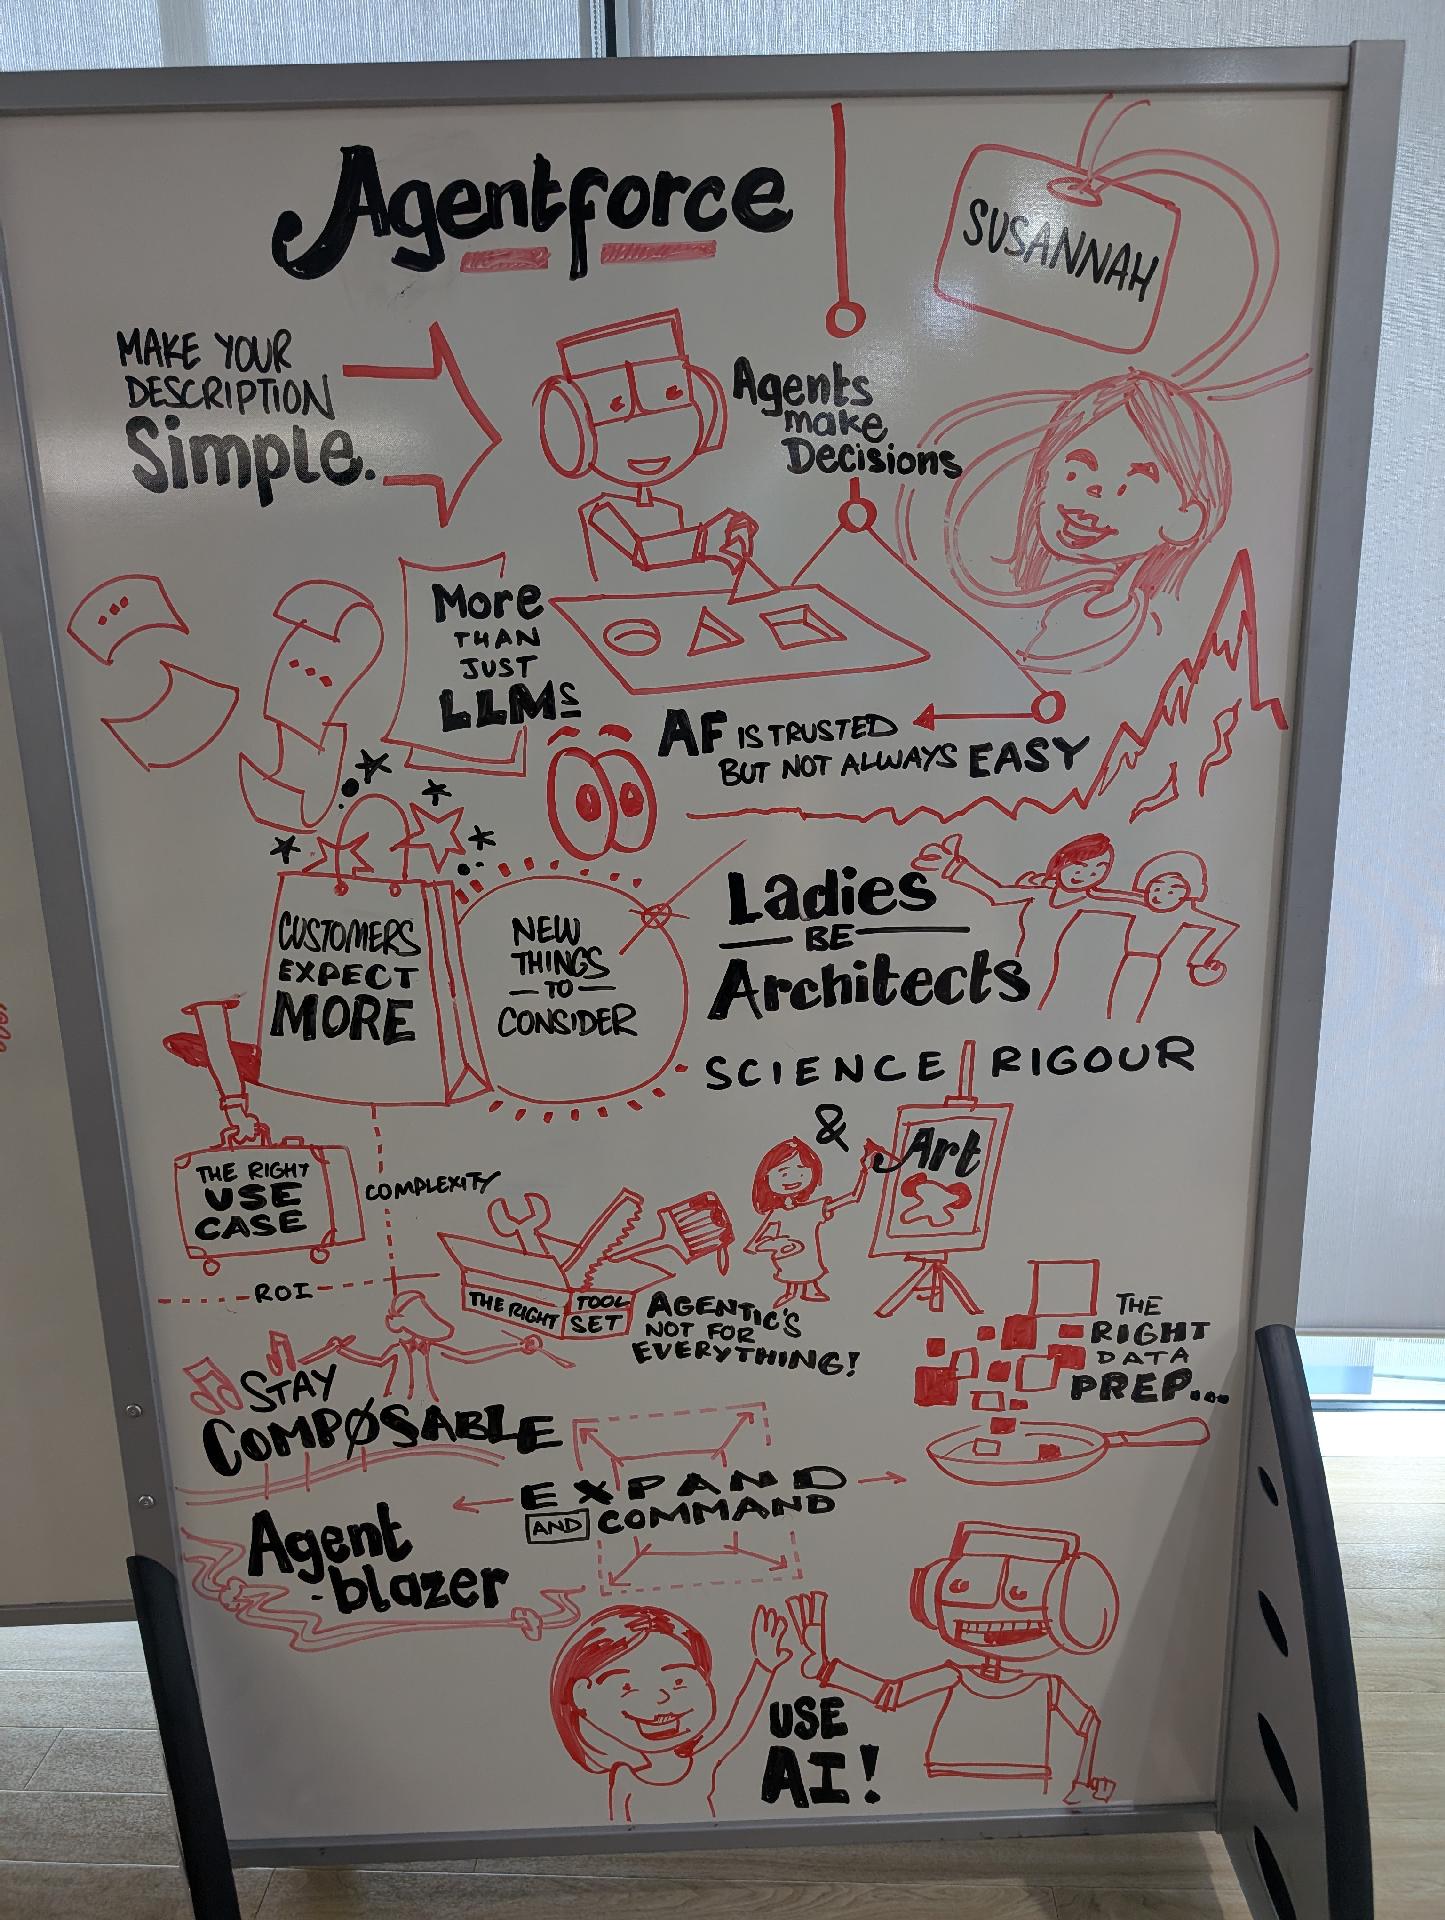 Agentforce
SUSANNAH
MAKE YOUR
DESCRIPTION
Simple.
Agents
make
Decisions
More
THAN
JUST
LLMs
AF IS TRUSTED
BUT NOT ALWAYS EASY
CUSTOMERS
EXPECT
MORE
NEW
THINGS
TO
CONSIDER
Ladies
BE
Architects
SCIENCE RIGOUR
&
Art
THE RIGHT
USE
CASE
COMPLEXITY
ROI
THE RIGHT TOOL
SET
AGENTIC'S
NOT FOR
EVERYTHING!
THE
RIGHT
DATA
PREP...
STAY
COMPØSABLE
EXPAND
AND COMMAND
Agent
-blazer
USE
AI!